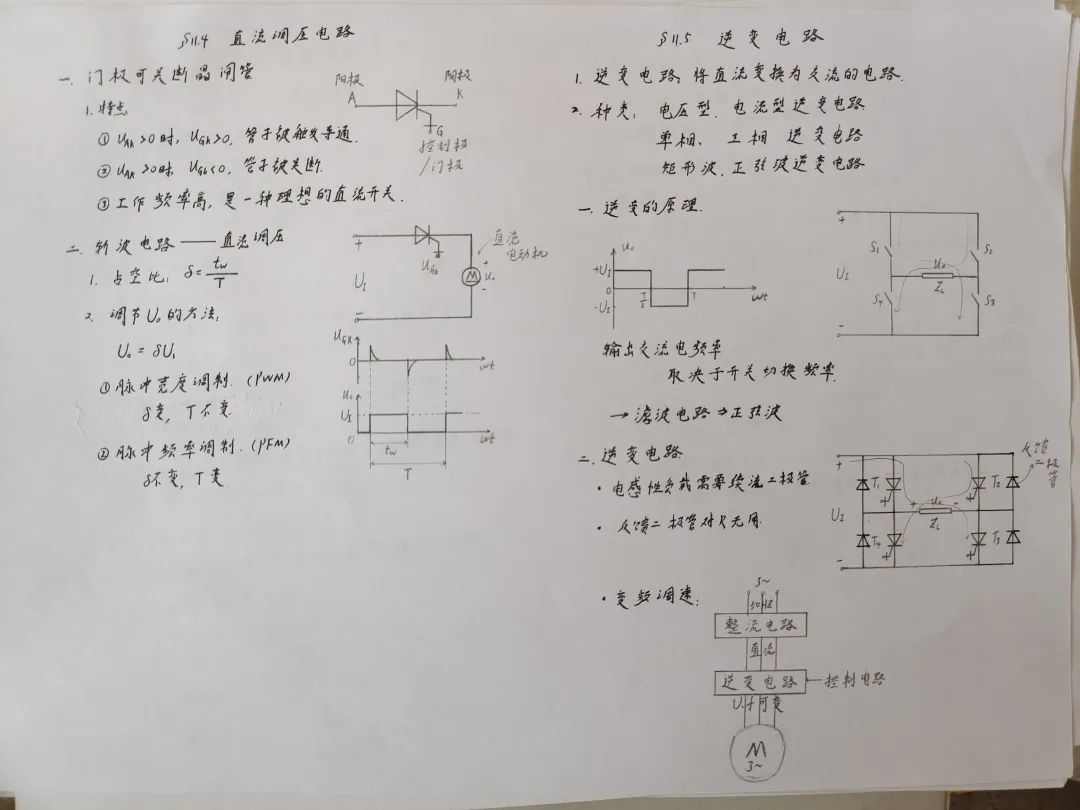 §11.4 直流调压电路
一. 门极可关断晶闸管
1. 特点:
① UAK>0时, UGK>0, 管子被触发导通.
② UAK>0时, UGK<0, 管子被关断.
③ 工作频率高, 是一种理想的直流开关.
阳极
A
阴极
K
G
控制极
/门极
二. 斩波电路——直流调压
1. 占空比: δ=tw/T
2. 调节Uo的方法:
Uo = δUI
① 脉冲宽度调制. (PWM)
δ变, T不变.
② 脉冲频率调制. (PFM)
δ不变, T变.
+
UI
-
UGK
M
+
Uo
-
直流
电动机
UGK
0
ωt
Uo
UI
0
ωt
tw
T
§11.5 逆变电路
1. 逆变电路: 将直流变换为交流的电路.
2. 种类: 电压型. 电流型逆变电路
单相、三相 逆变电路
矩形波. 正弦波逆变电路
一. 逆变的原理.
Uo
+UI
0
-UI
T/2
T
ωt
+
UI
-
S1
S2
S3
S4
Uo
ZL
输出交流电频率
取决于开关切换频率.
→滤波电路⇒正弦波
二. 逆变电路
· 电感性负载需要续流二极管
· 反馈二极管对R无用.
+
UI
-
T1
T2
T3
T4
+ Uo -
ZL
反馈
二极管
· 变频调速:
3~
50HZ
整流电路
直流
逆变电路
←控制电路
U.f可变
M
3~